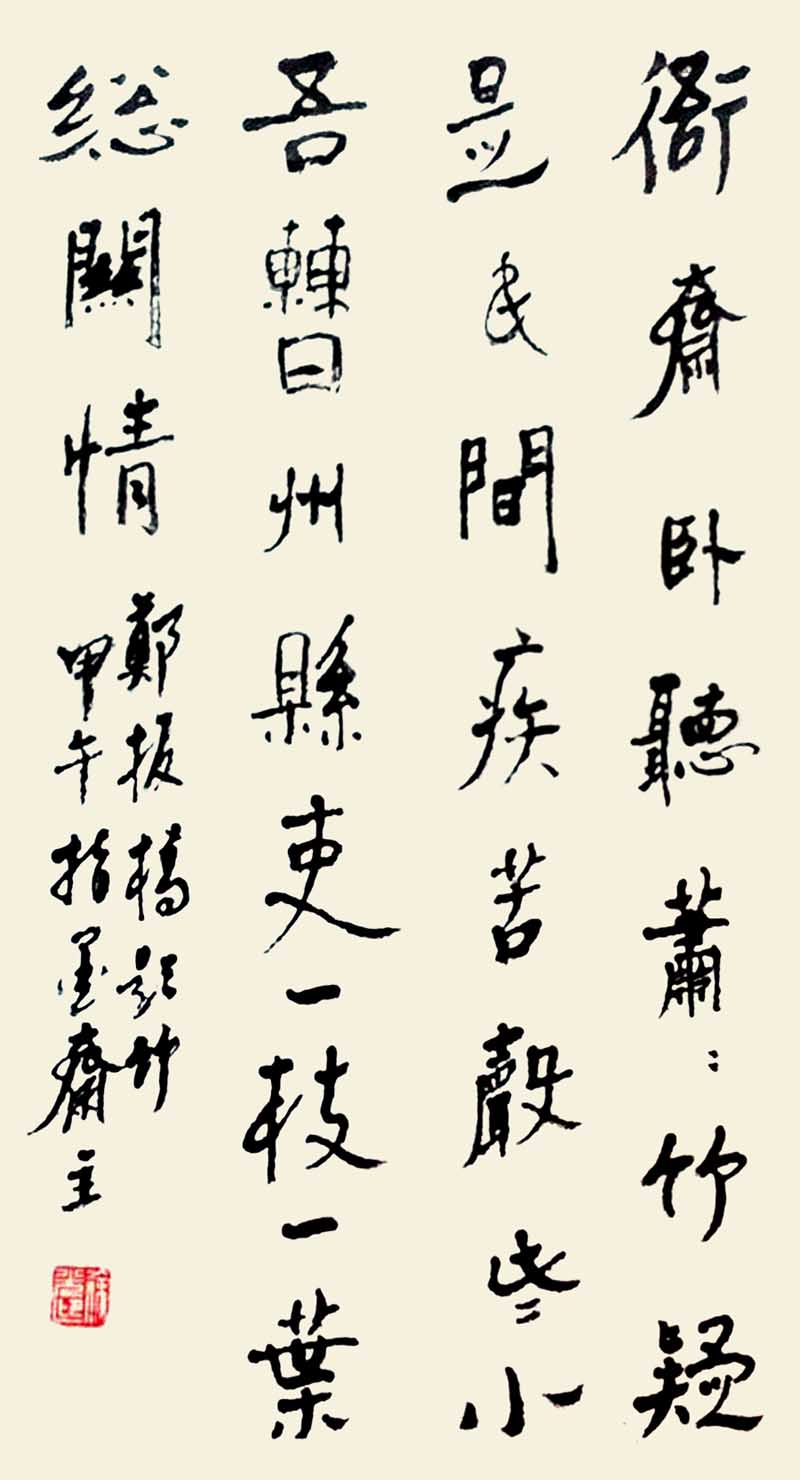 衙齋卧聽蕭：竹疑
是民間疾苦聲些小
吾曹州縣吏一枝一葉
総關情
鄭板橋題竹
甲午指墨齋主